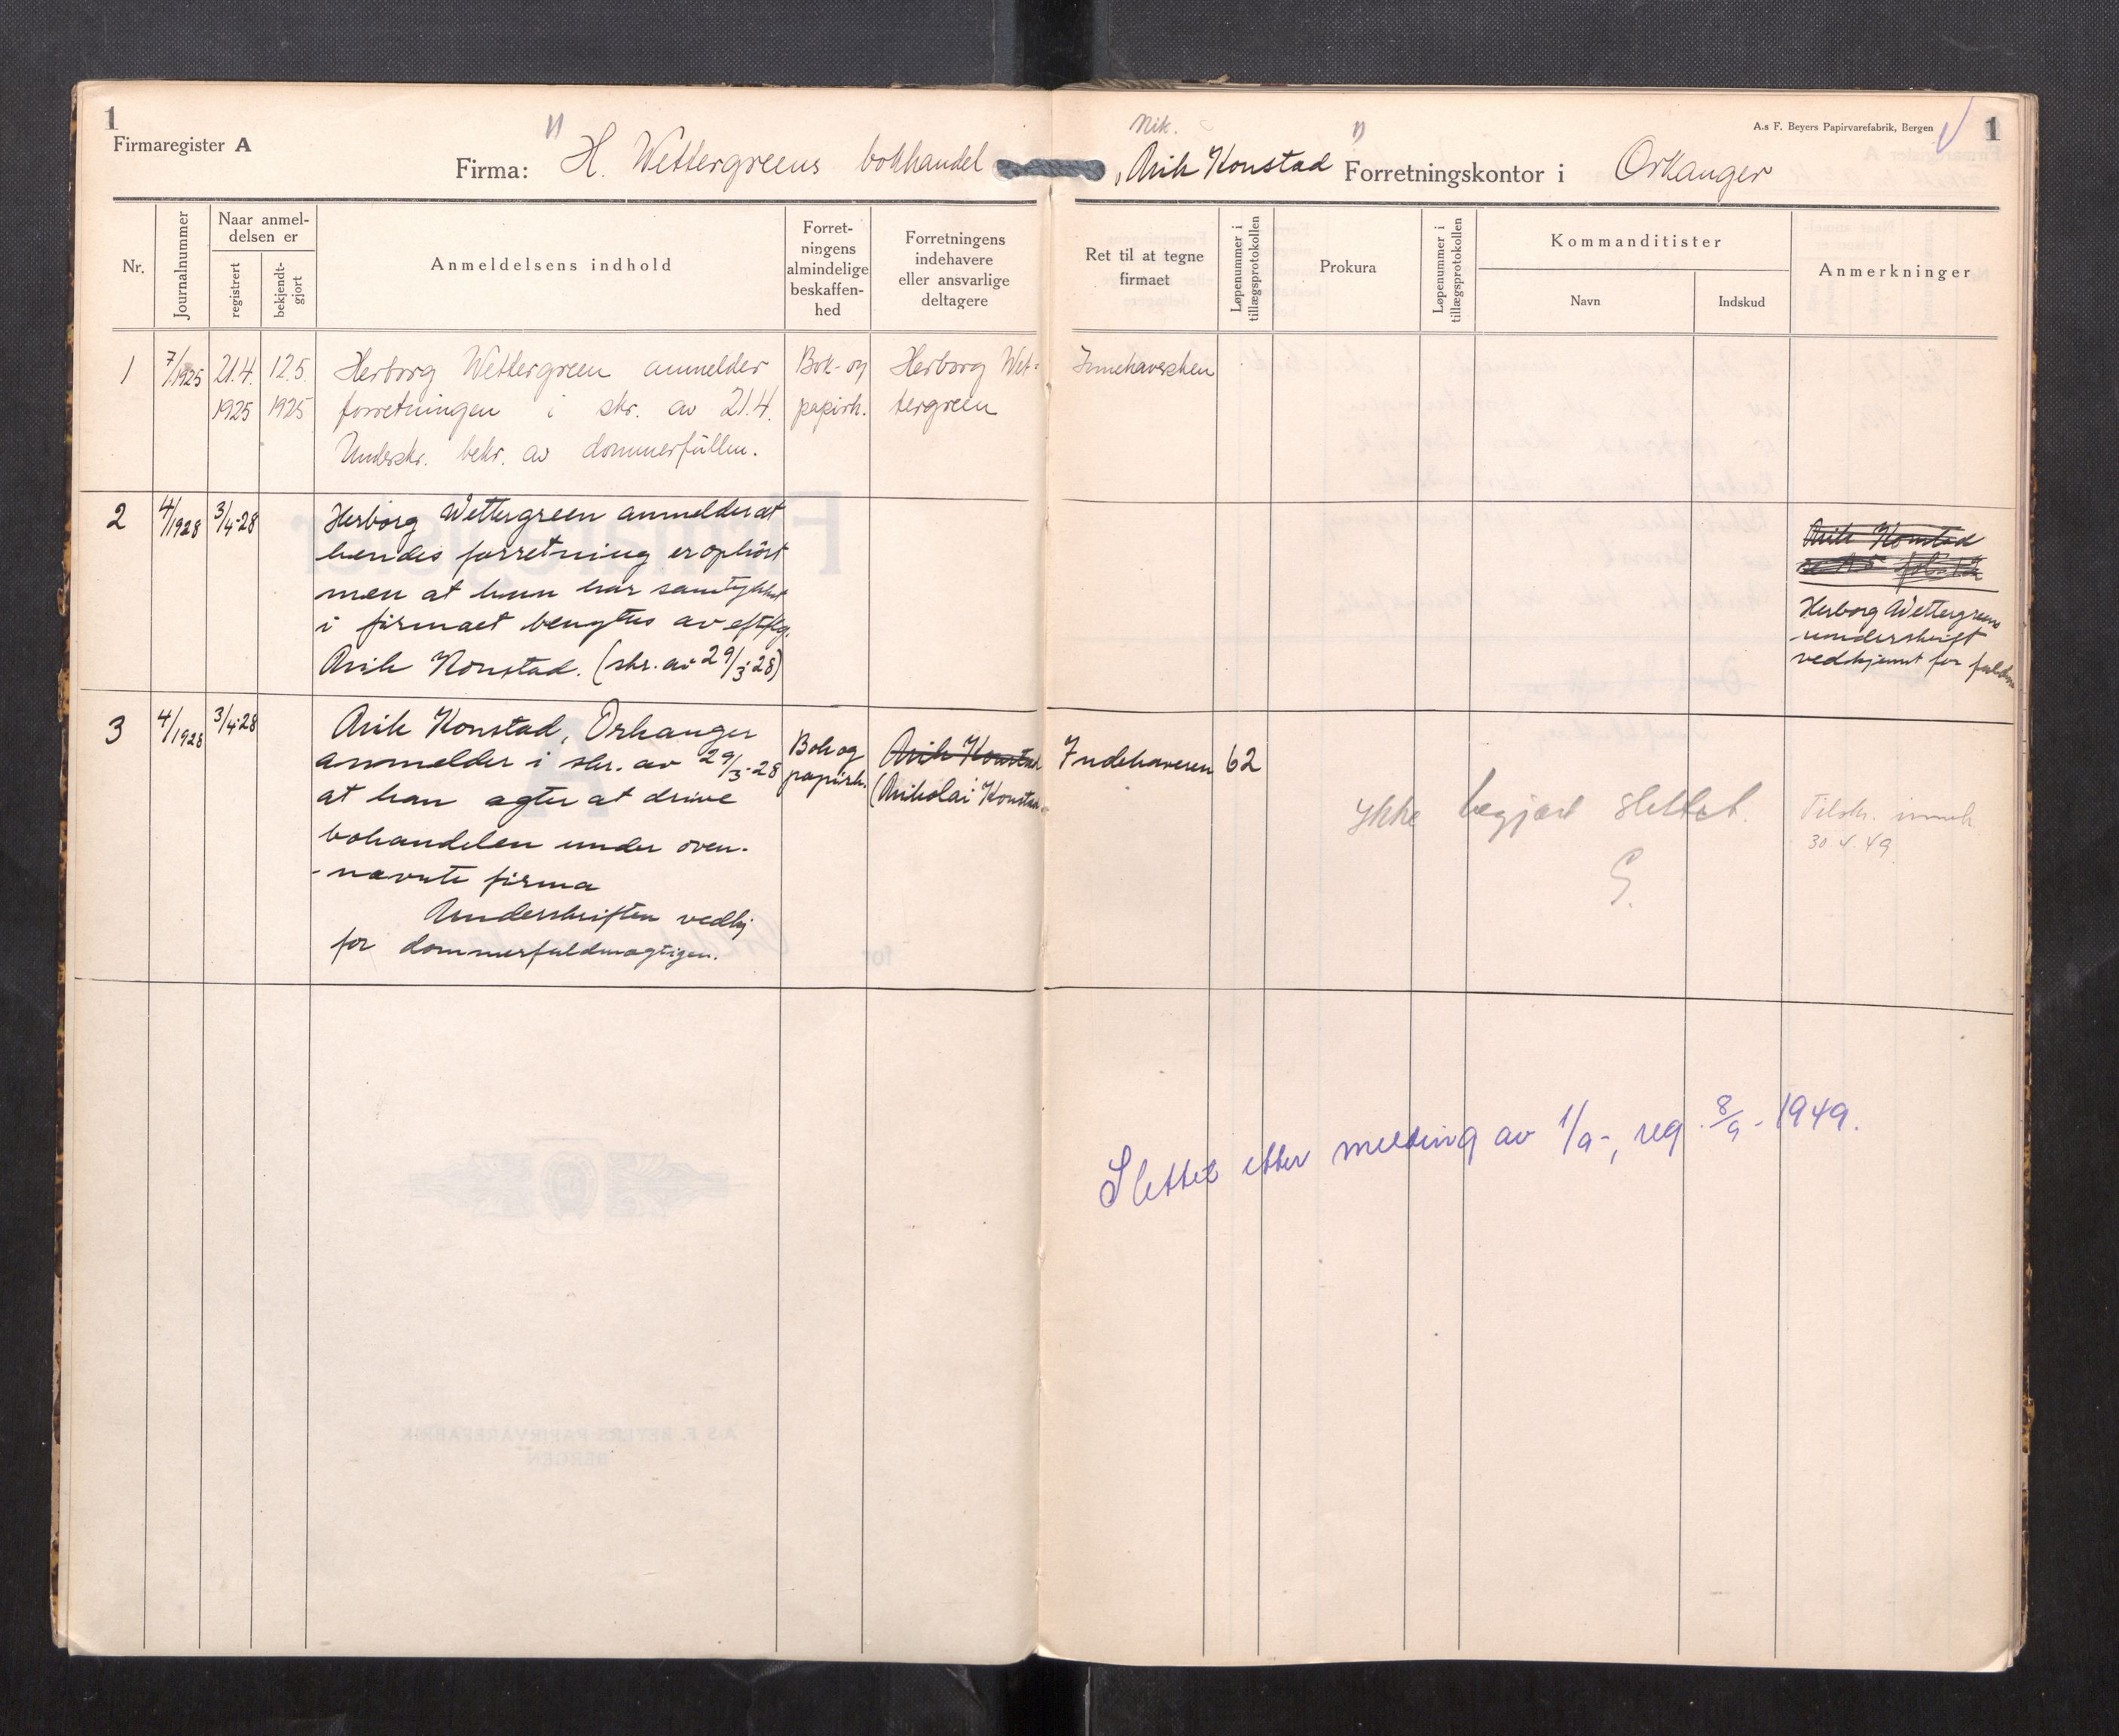 1
Firmaregister A
Firma: 1) H. Wettergreens bokhandel
Nr.
Journalnummer
Naar anmel-
delsen er
registrert
bekjendt-
gjort
Anmeldelsens indhold
Forret-
ningens
almindelige
beskaffen-
hed
Forretningens
indehavere
eller ansvarlige
deltagere
1
7/1925
21.4.
1925
12.5.
1925
Herborg Wettergreen anmelder
forretningen i skr. av 21.4.
Underskr. bekr. av dommerfullm.
Bok- og
papirh.
Herborg Wet-
tergreen
2
4/1928
3/4-28
Herborg Wettergreen anmelder at
hendes forretning er ophört
men at hun har samtykket
i firmaet benyttes av eftflg.
Nik Konstad. (skr. av 29/3-28)
3
4/1928
3/4-28
Nik Konstad, Orkanger
anmelder i skr. av 29/3-28
at han agter at drive
bohandelen under oven-
-nævnte firma
Underskriften vedkj
for dommerfuldmægtigen.
Bok og
papirh.
Nik Konstad
(Nikolai Konstad
Nik.
1)
, Nik Konstad Forretningskontor i Orkanger
A.s F. Beyers Papirvarefabrik, Bergen
1
Ret til at tegne
firmaet
Løpenummer i
tillægsprotokollen
Prokura
Løpenummer i
tillægsprotokollen
Kommanditister
Navn
Indskud
Anmerkninger
Innehaversken
Nik Konstad
Herborg Wettergreens
underskrift
vedkjennt for fuldm
Indehaveren
62
Ikke begjært slettet.
G.
Tilskr. inneh
30.4.49
Slettet etter melding av 1/9-, reg. 8/9-1949.